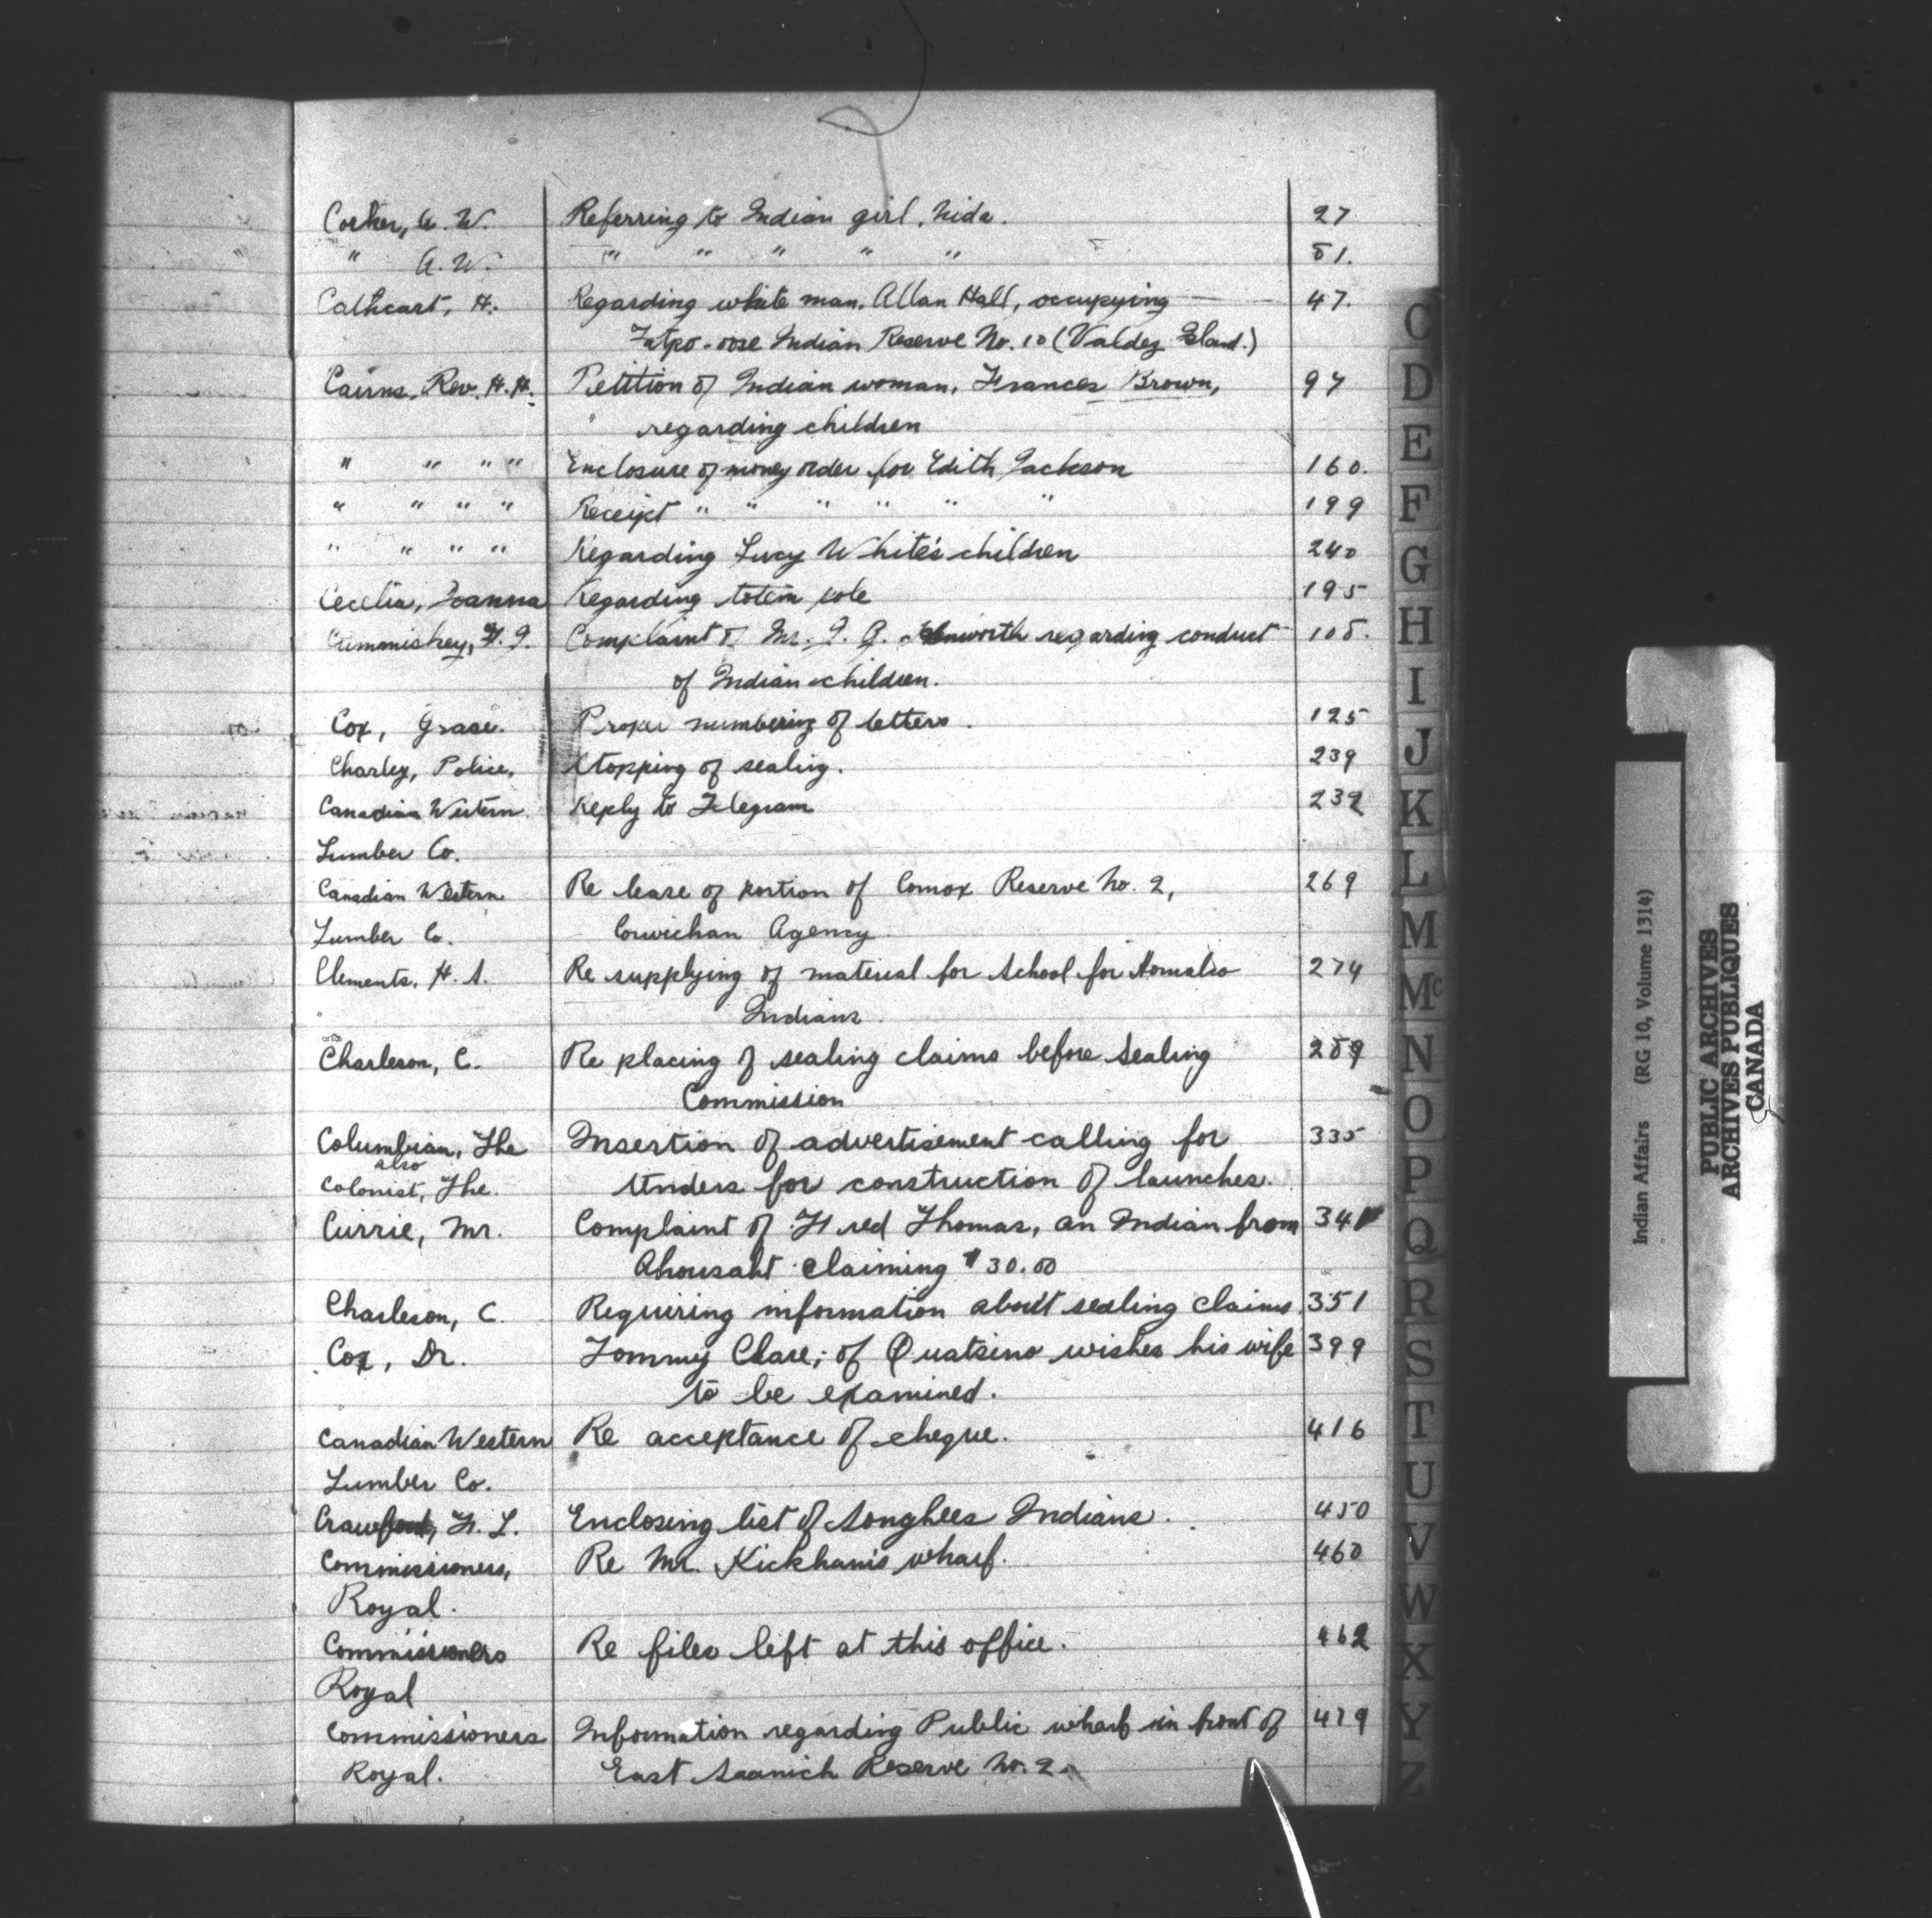 Corker, A. W. Referring to Indian girl, Nida. 27
" A. W. " " " " " 81.
Cathcart, H. Regarding white man, Allan Hall, occupying 47.
Indian Reserve No. 10 (Valdez Island.)
Cairns, Rev. H. H. Petition of Indian woman, Frances Brown, 97
regarding children
" " " " Enclosure of money order for Edith Jackson 160.
" " " " Receipt " " " " " " 199
" " " " Regarding Lucy White's children 240
Cecelia, Joanna Regarding totem pole 195
Cummiskey, Complaint of Mr. regarding conduct 108.
of Indian children.
Cox, Grase. Proper numbering of letters. 125
Charley, Police, Stopping of sealing. 239
Canadian Western Reply to Telegram 232
Lumber Co.
Canadian Western Re lease of portion of Comox Reserve No. 2, 269
Lumber Co. Cowichan Agency
Clements, H. S. Re supplying of material for School for Homalco 274
Indians.
Charleson, C. Re placing of sealing claims before Sealing 289
Commission
Columbian, The Insertion of advertisement calling for 335
also
Colonist, The. tenders for construction of launches.
Currie, Mr. Complaint of Fred Thomas, an Indian from 341
Ahousaht claiming $30.00
Charleson, C. Requiring information about sealing claims. 351
Cox, Dr. Tommy Clare, of Quatsino wishes his wife 399
to be examined.
Canadian Western Re acceptance of cheque. 416
Lumber Co.
Crawford, F. L. Enclosing list of Songhees Indians. 450
Commissioners, Re Mr. Kickham's wharf. 460
Royal.
Commissioners Re files left at this office. 462
Royal
Commissioners Information regarding Public wharf in front of 479
Royal. East Saanich Reserve No. 2.
C
D
E
F
G
H
I
J
K
L
M
Mc
N
O
P
Q
R
S
T
U
V
W
X
Y
Z
Indian Affairs (RG 10, Volume 1314)
PUBLIC ARCHIVES
ARCHIVES PUBLIQUES
CANADA